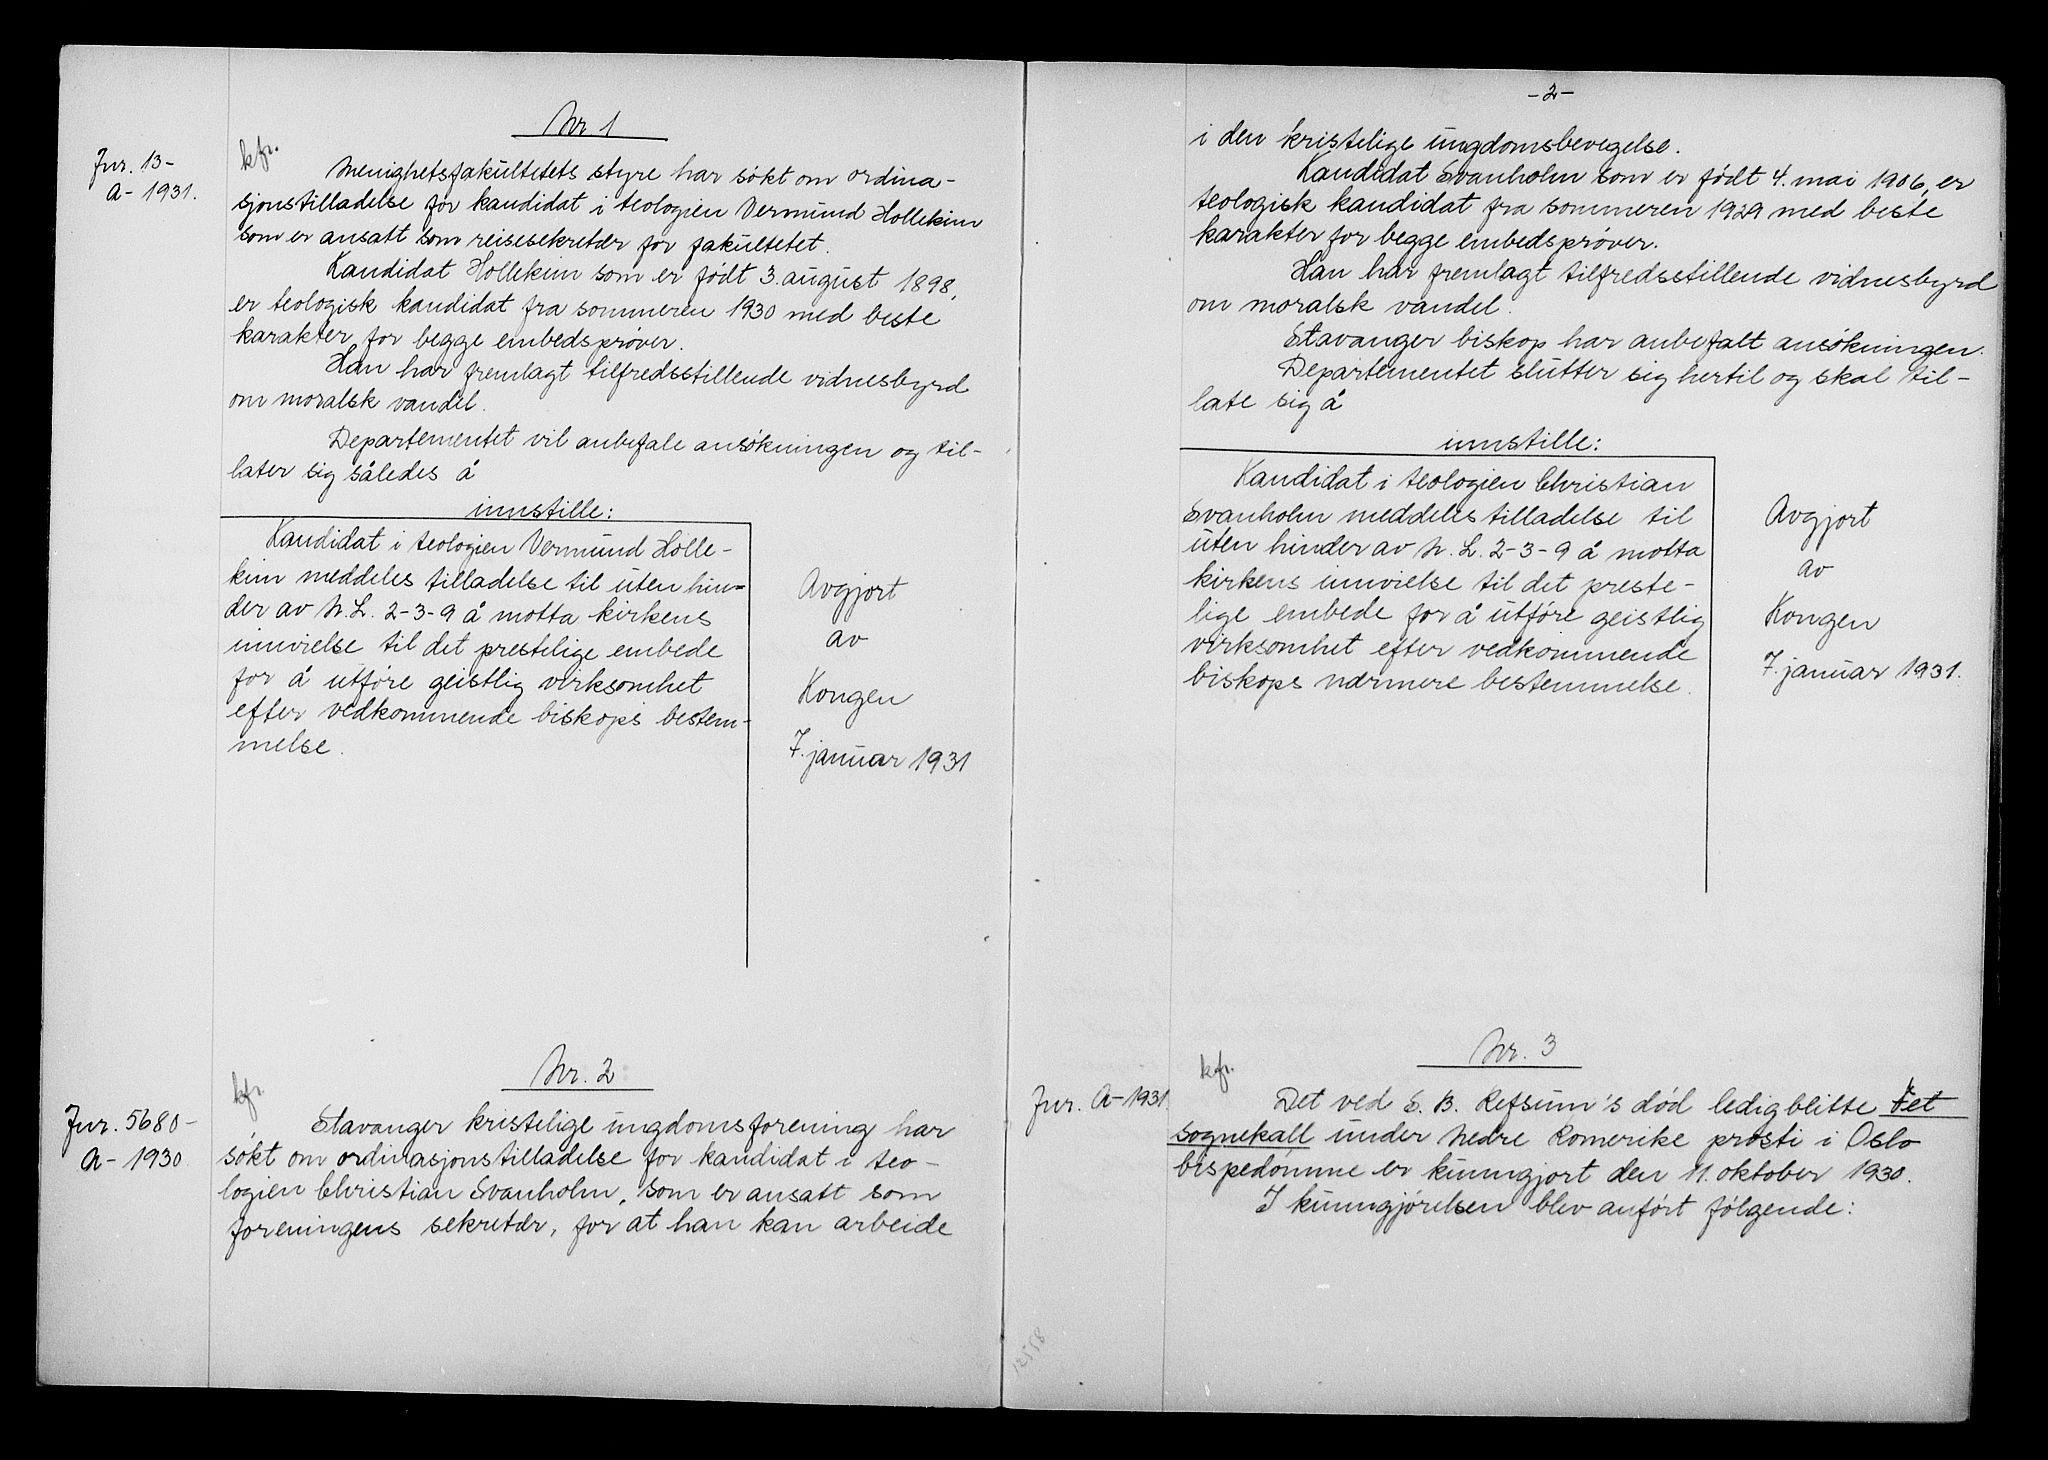 Nr 1
Jnr. 13-
A- 1931.
kfr.
Menighetsfakultetets styre har søkt om ordina-
sjonstilladelse for kandidat i teologien Vermund Hollekim
som er ansatt som reisesekretær for fakultetet.
Kandidat Hollekim som er født 3. august 1898,
er teologisk kandidat fra sommeren 1930 med beste
karakter for begge embedsprøver.
Han har fremlagt tilfredsstillende vidnesbyrd
om moralsk vandel.
Departementet vil anbefale ansøkningen og til-
later sig således å
innstille:
Kandidat i teologien Vermund Holle-
kim meddeles tilladelse til uten hin-
der av N. L. 2-3-9 å motta kirkens
innvielse til det prestelige embede
for å utføre geistlig virksomhet
efter vedkommende biskops bestem-
melse.
Avgjort
av
Kongen
7. januar 1931
Nr. 2
Jnr. 5680-
A- 1930.
kfr.
Stavanger kristelige ungdomsforening har
søkt om ordinasjonstilladelse for kandidat i teo-
logien Christian Svanholm, som er ansatt som
foreningens sekretær, for at han kan arbeide
-2-
i den kristelige ungdomsbevegelse.
Kandidat Svanholm som er født 4. mai 1906, er
teologisk kandidat fra sommeren 1929 med beste
karakter for begge embedsprøver.
Han har fremlagt tilfredsstillende vidnesbyrd
om moralsk vandel.
Stavanger biskop har anbefalt ansøkningen.
Departementet slutter sig hertil og skal til-
late sig å
innstille:
Kandidat i teologien Christian
Svanholm meddeles tilladelse til
uten hinder av N. L. 2-3-9 å motta
kirkens innvielse til det preste-
lige embede for å utføre geistlig
virksomhet efter vedkommende
biskops nærmere bestemmelse.
Avgjort
av
Kongen
7. januar 1931.
Nr. 3
kfr.
Jnr. A-1931.
Det ved S. B. Refsum's død ledigblitte Fet
sognekall under Nedre Romerike prosti i Oslo
bispedømme er kunngjort den 11. oktober 1930.
I kunngjørelsen blev anført følgende:
12558